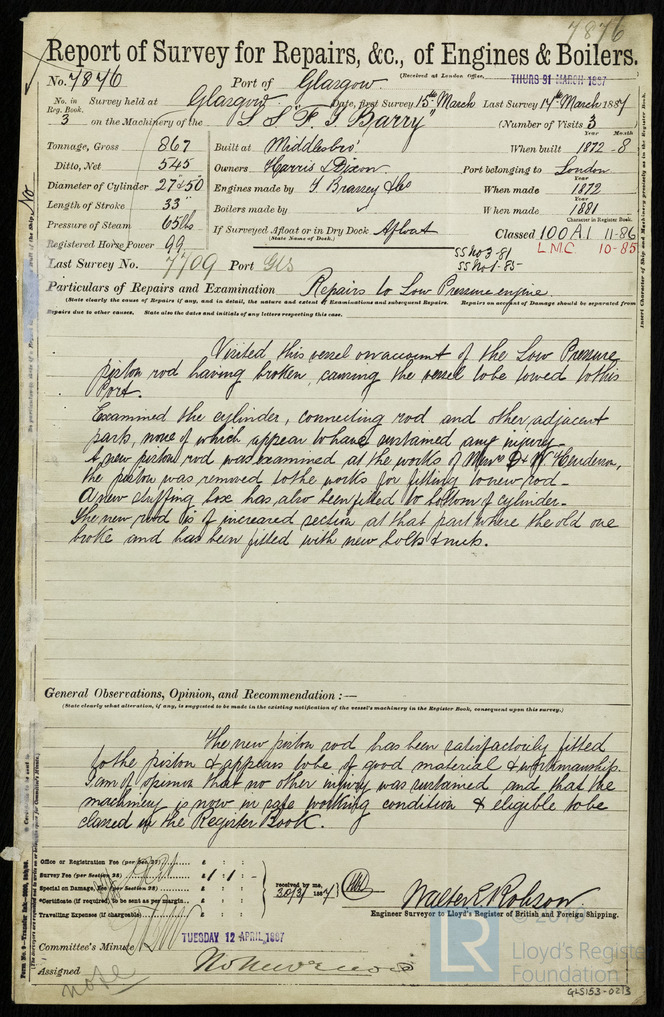 7876
Report of Survey for Repairs, &c., of Engines & Boilers.
(Received at London Office, THURS 31 MARCH 1887
No. 7876 Port of Glasgow
No. in Reg. Book. 3 Survey held at Glasgow Date, first Survey 15th March Last Survey 17th March 1887
on the Machinery of the S.S. "F. J. Barry" (Number of Visits 3
Tonnage, Gross 867 Built at Middlesbro' When built Year 1872 Month - 8
Ditto, Net 545 Owners Harris & Dixon Port belonging to London
Diameter of Cylinder 27 & 50 Engines made by T Brassey & Co When made Year 1872
Length of Stroke 33" Boilers made by When made Year 1881
Pressure of Steam 65 lbs If Surveyed Afloat or in Dry Dock Afloat Character in Register Book. Classed 100A1 11-86
(State Name of Dock.)
LMC 10-85
Registered Horse Power 99
SS No 3-81
SS No 1-85-
Last Survey No. 7709 Port Gls
Particulars of Repairs and Examination Repairs to Low Pressure engine.
(State clearly the cause of Repairs if any, and in detail, the nature and extent of Examinations and subsequent Repairs. Repairs on account of Damage should be separated from
Repairs due to other causes. State also the dates and initials of any letters respecting this case.)
Visited, this vessel on account of the Low Pressure
piston rod having broken, causing the vessel to be towed to this
Port.
Examined the cylinder, connecting rod and other adjacent
parts, none of which appear to have sustained any injury
A new piston rod was examined at the works of Messrs D & W Henderson,
the piston was removed to the works for fitting to new rod -
A new stuffing box has also been fitted to bottom of cylinder -
The new rod is of increased section at that part where the old one
broke and has been fitted with new bolts & nuts.
General Observations, Opinion, and Recommendation :—
(State clearly what alteration, if any, is suggested to be made in the existing notification of the vessel's machinery in the Register Book, consequent upon this survey.)
The new piston rod has been satisfactorily fitted
to the piston & appears to be of good material & workmanship.
I am of opinion that no other injury was sustained and that the
machinery is now in safe working condition & eligible to be
classed in the Register Book.
Office or Registration Fee (per Sec. 27) £ : :
Survey Fee (per Section 28) £ 1 : 1 : -
Special or Damage, Fee (per Section 28) £ : :
*Certificate (if required) to be sent as per margin £ : :
Travelling Expenses (if chargeable) £ : :
received by me, 30/3/1887
Walter E Robson
Engineer Surveyor to Lloyd's Register of British and Foreign Shipping.
Committee's Minute TUESDAY 12 APRIL, 1887
Assigned
note
Lloyd's Register
Foundation
GLS153-0213